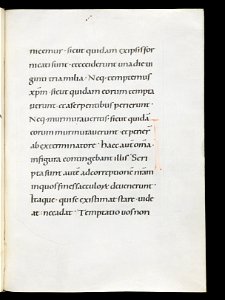 nicemur · sicut quidam ex ipsis for
nicati sunt · et ceciderunt una die ui
ginti tria milia · Neq· temptemus
xp̄m · sicut quidam eorum tempta
uerunt · et a serpentibus perierunt ·
Neq· murmuraueritis · sicut quidā
eorum murmurauerunt · et perier̄
ab exterminatore · haec aut̄ om̄ia ·
in figura contingebant illis · Scri
pta sunt aut̄ ad correptionē n̄ram
in quos fines saeculorū deuenerunt ·
Itaque · qui se existimat stare · uide
at · ne cadat · Temptatio uos non